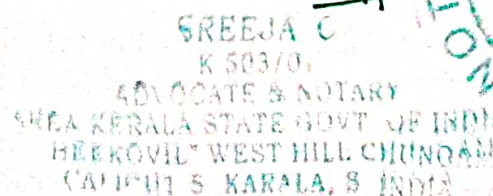 SREEJA C
K 503/0
ADVOCATE & NOTARY
AREA KERALA STATE GOVT OF INDI
WEST HILL CHUNGAM
CALICUT 5 KARALA, S INDIA